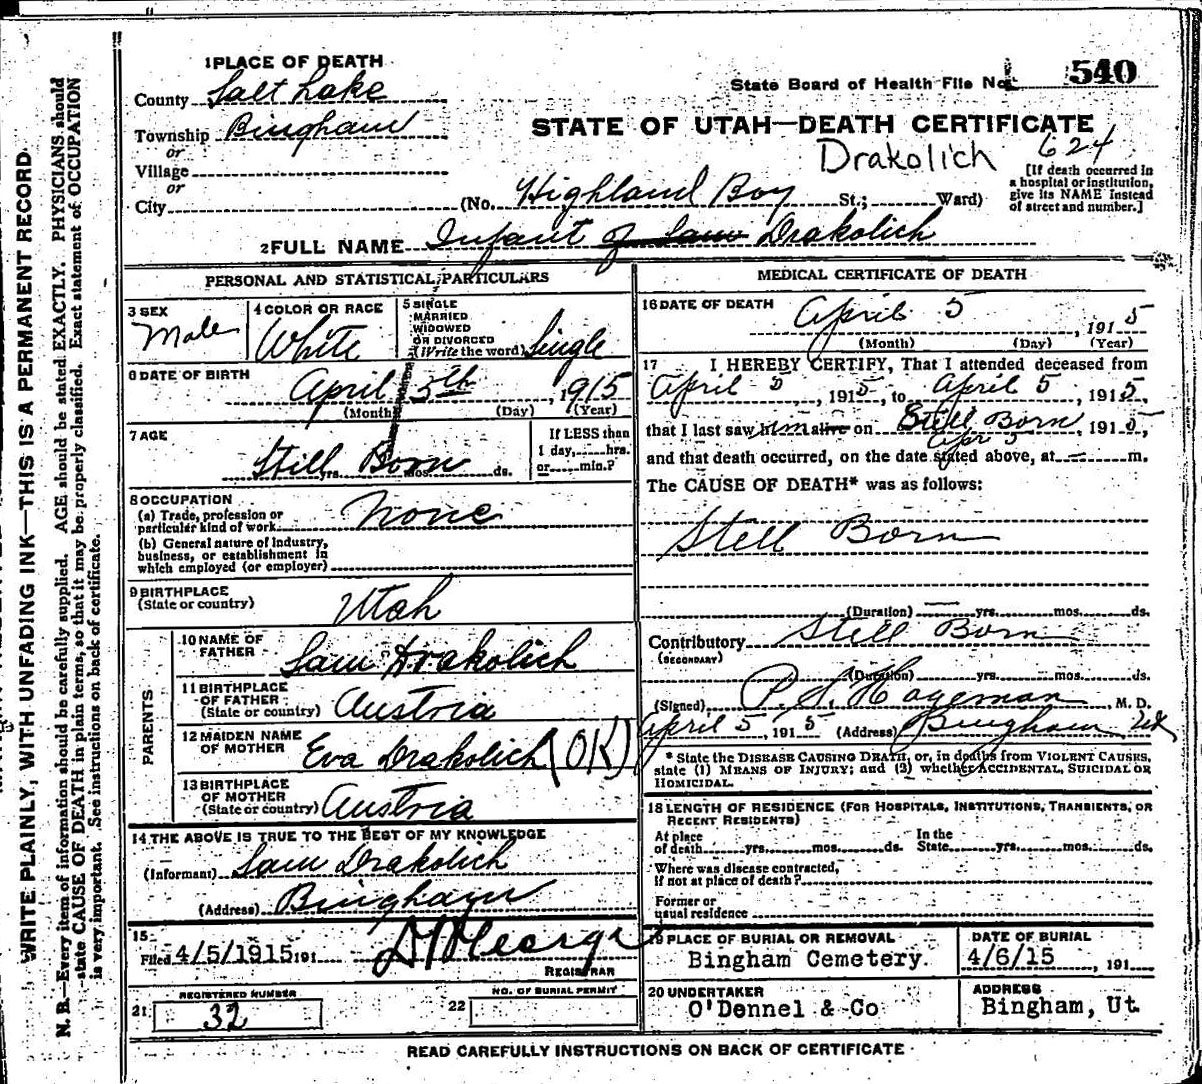 1 PLACE OF DEATH
County Salt Lake
State Board of Health File No. 540
Township Bingham
STATE OF UTAH—DEATH CERTIFICATE
or
Drakolich 624
Village
or
City (No. Highland Boy St.; Ward)
[If death occurred in
a hospital or institution,
give its NAME instead
of street and number.]
2 FULL NAME Infant of Sam Drakolich
PERSONAL AND STATISTICAL PARTICULARS
3 SEX
Male
4 COLOR OR RACE
White
5 SINGLE
MARRIED
WIDOWED
OR DIVORCED
(Write the word) Single
6 DATE OF BIRTH
April 5th, 1915
(Month) (Day) (Year)
7 AGE
Still Born
yrs. mos. ds.
If LESS than
1 day, hrs.
or min.?
8 OCCUPATION
(a) Trade, profession or
particular kind of work None
(b) General nature of industry,
business, or establishment in
which employed (or employer)
9 BIRTHPLACE
(State or country) Utah
PARENTS
10 NAME OF
FATHER Sam Drakolich
11 BIRTHPLACE
OF FATHER
(State or country) Austria
12 MAIDEN NAME
OF MOTHER Eva Drakolich (OK)
13 BIRTHPLACE
OF MOTHER
(State or country) Austria
14 THE ABOVE IS TRUE TO THE BEST OF MY KNOWLEDGE
(Informant) Sam Drakolich
(Address) Bingham
15
Filed 4/5/1915 191
REGISTRAR
REGISTERED NUMBER
21 32
NO. OF BURIAL PERMIT
22
MEDICAL CERTIFICATE OF DEATH
16 DATE OF DEATH
April 5, 1915
(Month) (Day) (Year)
17 I HEREBY CERTIFY, That I attended deceased from
April 5, 1915, to April 5, 1915,
that I last saw him alive on Still Born, 1915,
Apr 5
and that death occurred, on the date stated above, at m.
The CAUSE OF DEATH* was as follows:
Still Born
(Duration) yrs. mos. ds.
Contributory Still Born
(SECONDARY)
(Duration) yrs. mos. ds.
(Signed) P. S. Hageman M. D.
April 5, 1915 (Address) Bingham, Ut
* State the DISEASE CAUSING DEATH, or, in deaths from VIOLENT CAUSES,
state (1) MEANS OF INJURY; and (2) whether ACCIDENTAL, SUICIDAL OR
HOMICIDAL.
18 LENGTH OF RESIDENCE (FOR HOSPITALS, INSTITUTIONS, TRANSIENTS, OR
RECENT RESIDENTS)
At place
of death yrs. mos. ds.
In the
State yrs. mos. ds.
Where was disease contracted,
if not at place of death?
Former or
usual residence
19 PLACE OF BURIAL OR REMOVAL
Bingham Cemetery.
DATE OF BURIAL
4/6/15, 191
20 UNDERTAKER
O'Donnel & Co
ADDRESS
Bingham, Ut.
READ CAREFULLY INSTRUCTIONS ON BACK OF CERTIFICATE
WRITE PLAINLY, WITH UNFADING INK—THIS IS A PERMANENT RECORD
N. B.—Every item of information should be carefully supplied. AGE should be stated EXACTLY. PHYSICIANS should
state CAUSE OF DEATH in plain terms, so that it may be properly classified. Exact statement of OCCUPATION
is very important. See instructions on back of certificate.